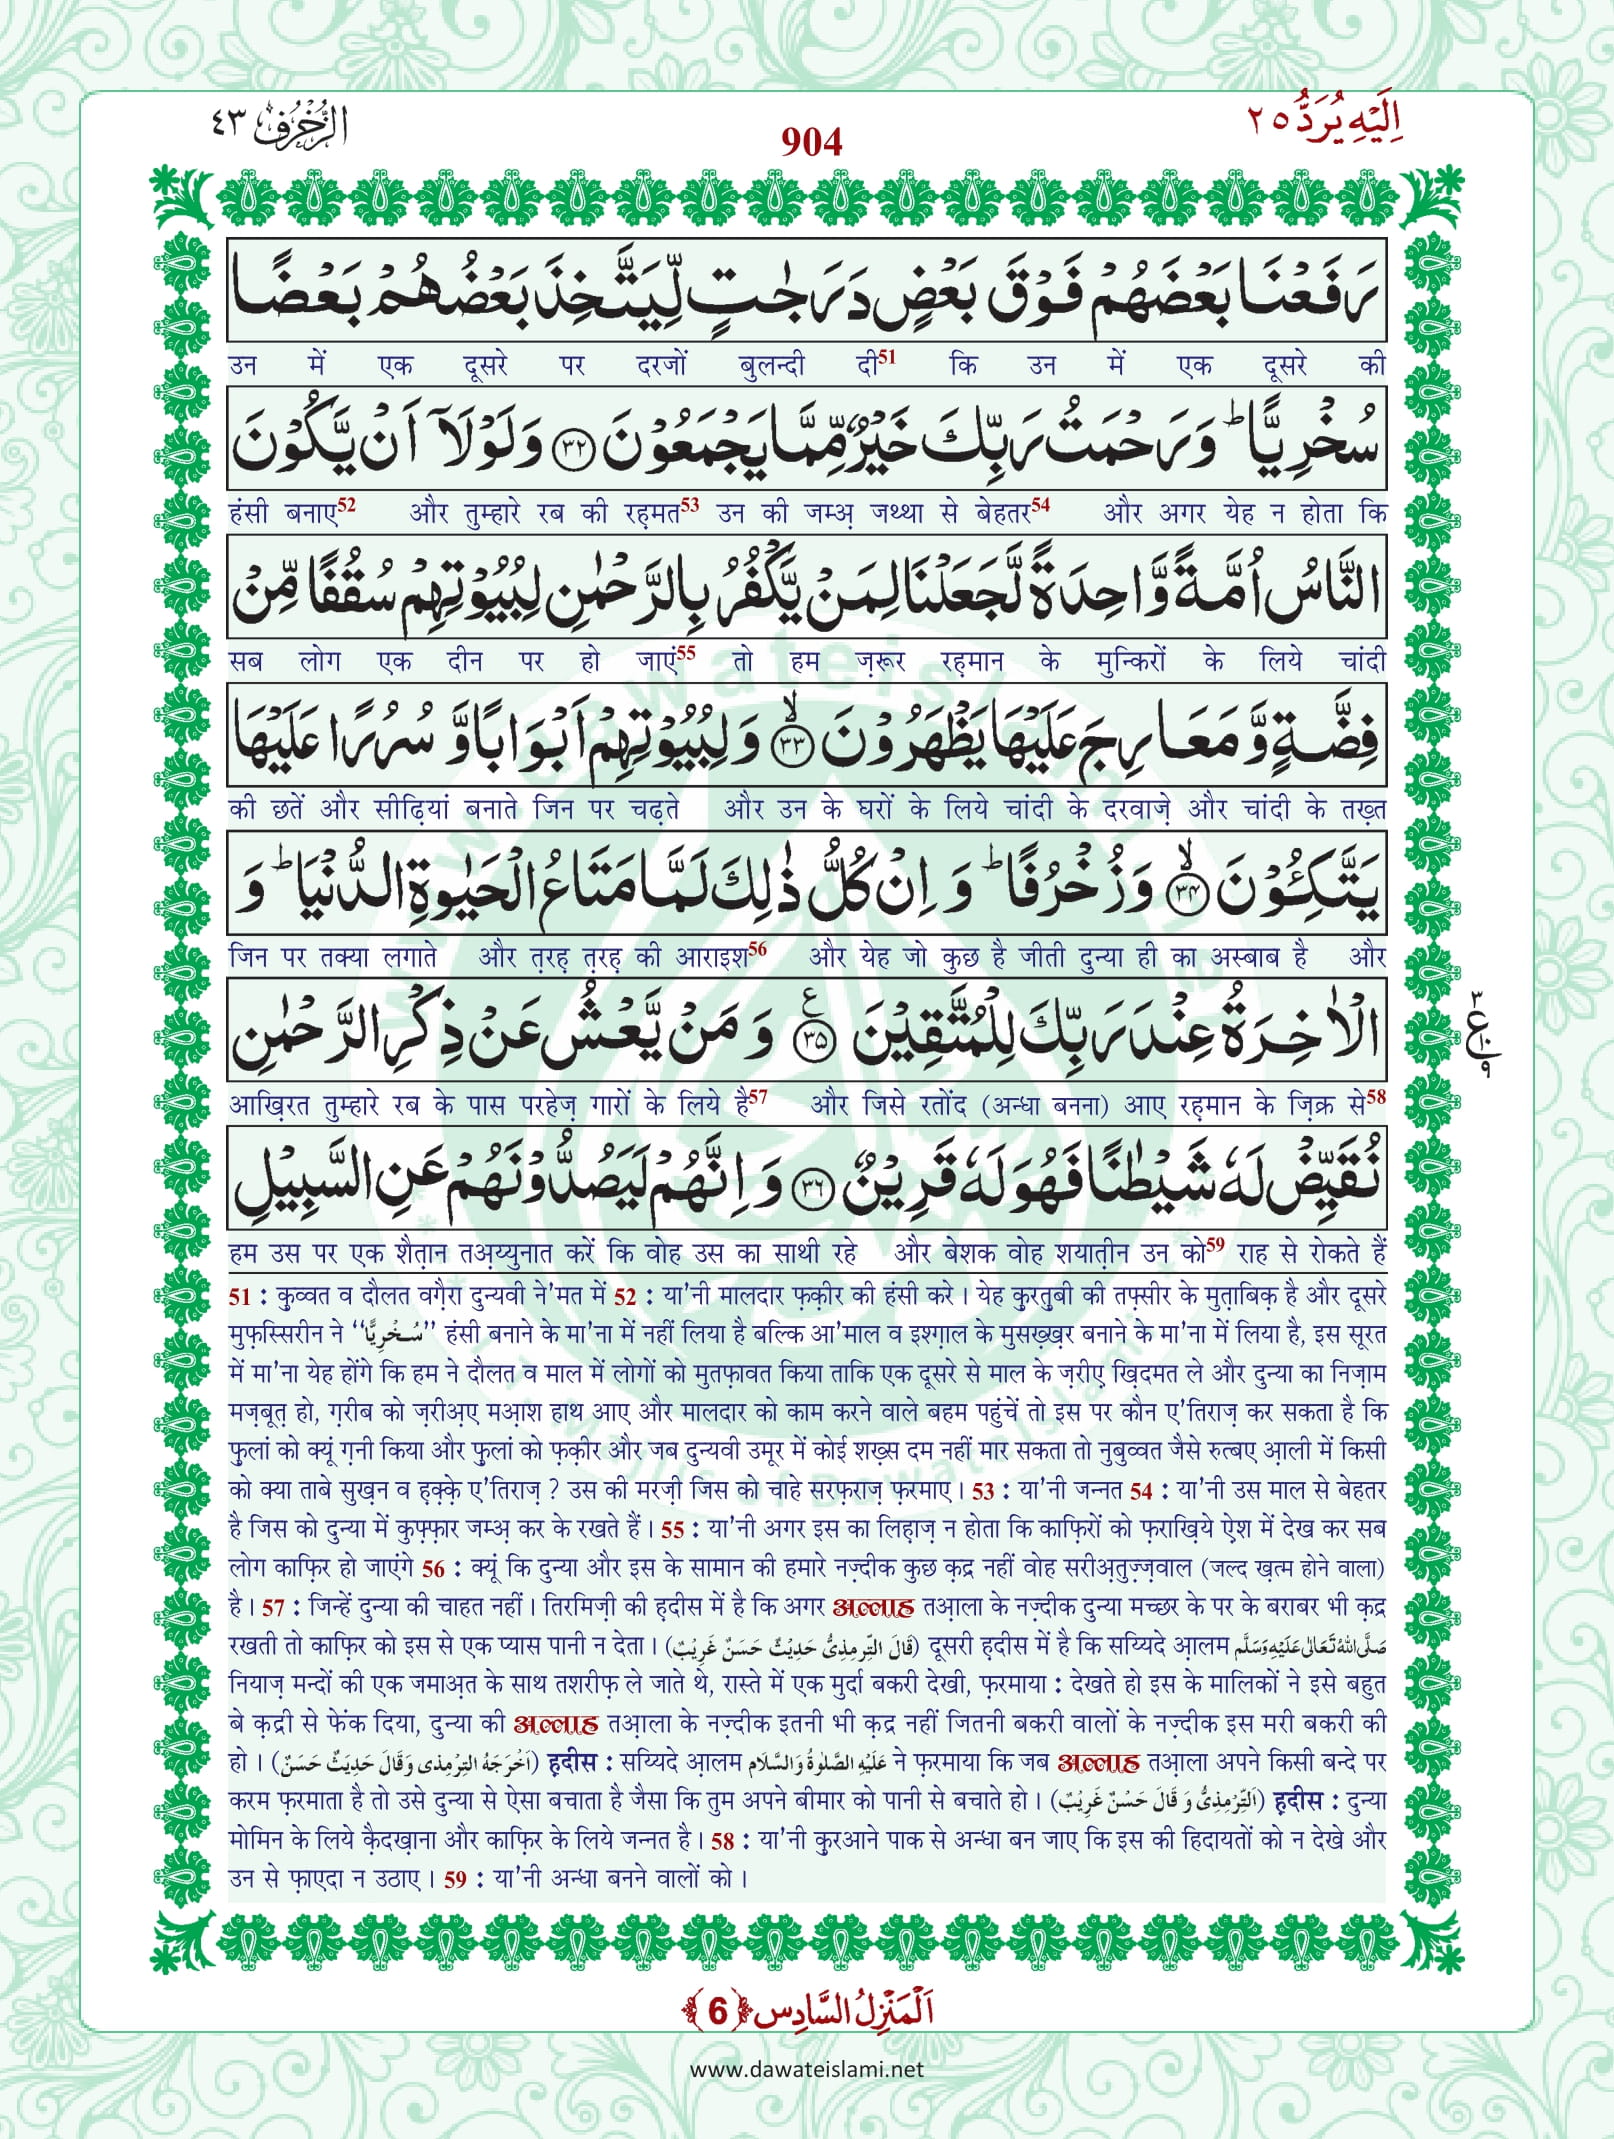 اِلَیْهِ یُرَدُّ ٢٥
904
الزُّخْرُف ٤٣
رَفَعْنَا بَعْضَهُمْ فَوْقَ بَعْضٍ دَرَجٰتٍ لِّیَتَّخِذَ بَعْضُهُمْ بَعْضًا
उन में एक दूसरे पर दरजों बुलन्दी दी51 कि उन में एक दूसरे की
سُخْرِیًّاؕ وَ رَحْمَتُ رَبِّكَ خَیْرٌ مِّمَّا یَجْمَعُوْنَ ﴿۳۲﴾ وَ لَوْلَاۤ اَنْ یَّكُوْنَ
हंसी बनाए52 और तुम्हारे रब की रह़मत53 उन की जम्अ़ जथ्था से बेहतर54 और अगर येह न होता कि
النَّاسُ اُمَّةً وَّاحِدَةً لَّجَعَلْنَا لِمَنْ یَّكْفُرُ بِالرَّحْمٰنِ لِبُیُوْتِهِمْ سُقُفًا مِّنْ
सब लोग एक दीन पर हो जाएं55 तो हम ज़रूर रह़मान के मुन्किरों के लिये चांदी
فِضَّةٍ وَّ مَعَارِجَ عَلَیْهَا یَظْهَرُوْنَۙ ﴿۳۳﴾ وَ لِبُیُوْتِهِمْ اَبْوَابًا وَّ سُرُرًا عَلَیْهَا
की छतें और सीढ़ियां बनाते जिन पर चढ़ते और उन के घरों के लिये चांदी के दरवाज़े और चांदी के तख़्त
یَتَّكِـُٔوْنَۙ ﴿۳۴﴾ وَ زُخْرُفًاؕ وَ اِنْ كُلُّ ذٰلِكَ لَمَّا مَتَاعُ الْحَیٰوةِ الدُّنْیَاؕ وَ
जिन पर तक्या लगाते और त़रह़ त़रह़ की आराइश56 और येह जो कुछ है जीती दुन्या ही का अस्बाब है और
الْاٰخِرَةُ عِنْدَ رَبِّكَ لِلْمُتَّقِیْنَ ﴿۳۵﴾ ع وَ مَنْ یَّعْشُ عَنْ ذِكْرِ الرَّحْمٰنِ
٣
ع١٠
٩
आख़िरत तुम्हारे रब के पास परहेज़ गारों के लिये है57 और जिसे रतोंद (अन्धा बनना) आए रह़मान के ज़िक्र से58
نُقَیِّضْ لَهٗ شَیْطٰنًا فَهُوَ لَهٗ قَرِیْنٌ ﴿۳۶﴾ وَ اِنَّهُمْ لَیَصُدُّوْنَهُمْ عَنِ السَّبِیْلِ
हम उस पर एक शैत़ान तअ़य्युनात करें कि वोह उस का साथी रहे और बेशक वोह शयात़ीन उन को59 राह से रोकते हैं
51 : कुव्वत व दौलत वग़ैरा दुन्यवी ने'मत में 52 : या'नी मालदार फ़क़ीर की हंसी करे । येह कुरतुबी की तफ़्सीर के मुत़ाबिक़ है और दूसरे
मुफ़स्सिरीन ने ‘‘سُخْرِیًّا’’ हंसी बनाने के मा'ना में नहीं लिया है बल्कि आ'माल व इश्ग़ाल के मुसख़्ख़र बनाने के मा'ना में लिया है, इस सूरत
में मा'ना येह होंगे कि हम ने दौलत व माल में लोगों को मुतफ़ावत किया ताकि एक दूसरे से माल के ज़रीए ख़िदमत ले और दुन्या का निज़ाम
मज़बूत़ हो, ग़रीब को ज़रीअ़ए मआ़श हाथ आए और मालदार को काम करने वाले बहम पहुंचें तो इस पर कौन ए'तिराज़ कर सकता है कि
फ़ुलां को क्यूं ग़नी किया और फ़ुलां को फ़क़ीर और जब दुन्यवी उमूर में कोई शख़्स दम नहीं मार सकता तो नुबुव्वत जैसे रुत्बए आ़ली में किसी
को क्या ताबे सुख़न व ह़क़्क़े ए'तिराज़ ? उस की मरज़ी जिस को चाहे सरफ़राज़ फ़रमाए । 53 : या'नी जन्नत 54 : या'नी उस माल से बेहतर
है जिस को दुन्या में कुफ़्फ़ार जम्अ़ कर के रखते हैं । 55 : या'नी अगर इस का लिह़ाज़ न होता कि काफ़िरों को फ़राख़िये ऐ़श में देख कर सब
लोग काफ़िर हो जाएंगे 56 : क्यूं कि दुन्या और इस के सामान की हमारे नज़्दीक कुछ क़द्र नहीं वोह सरीअ़तुज़्ज़वाल (जल्द ख़त्म होने वाला)
है । 57 : जिन्हें दुन्या की चाहत नहीं । तिरमिज़ी की ह़दीस में है कि अगर अल्लाह तआ़ला के नज़्दीक दुन्या मच्छर के पर के बराबर भी क़द्र
रखती तो काफ़िर को इस से एक प्यास पानी न देता । (قَالَ التِّرْمِذِیُّ حَدِیْثٌ حَسَنٌ غَرِیْبٌ) दूसरी ह़दीस में है कि सय्यिदे आ़लम صَلَّی اللّٰهُ تَعَالٰی عَلَیْهِ وَسَلَّم
नियाज़ मन्दों की एक जमाअ़त के साथ तशरीफ़ ले जाते थे, रास्ते में एक मुर्दा बकरी देखी, फ़रमाया : देखते हो इस के मालिकों ने इसे बहुत
बे क़द्री से फेंक दिया, दुन्या की अल्लाह तआ़ला के नज़्दीक इतनी भी क़द्र नहीं जितनी बकरी वालों के नज़्दीक इस मरी बकरी की
हो । (اَخْرَجَهُ التِّرْمِذِی وَقَالَ حَدِیْثٌ حَسَنٌ) ह़दीस : सय्यिदे आ़लम عَلَیْهِ الصَّلٰوةُ وَالسَّلَام ने फ़रमाया कि जब अल्लाह तआ़ला अपने किसी बन्दे पर
करम फ़रमाता है तो उसे दुन्या से ऐसा बचाता है जैसा कि तुम अपने बीमार को पानी से बचाते हो । (اَلتِّرْمِذِیُّ وَ قَالَ حَسَنٌ غَرِیْبٌ) ह़दीस : दुन्या
मोमिन के लिये क़ैदख़ाना और काफ़िर के लिये जन्नत है । 58 : या'नी क़ुरआने पाक से अन्धा बन जाए कि इस की हिदायतों को न देखे और
उन से फ़ाएदा न उठाए । 59 : या'नी अन्धा बनने वालों को ।
اَلْمَنْزِلُ السَّادِس ﴿6﴾
www.dawateislami.net